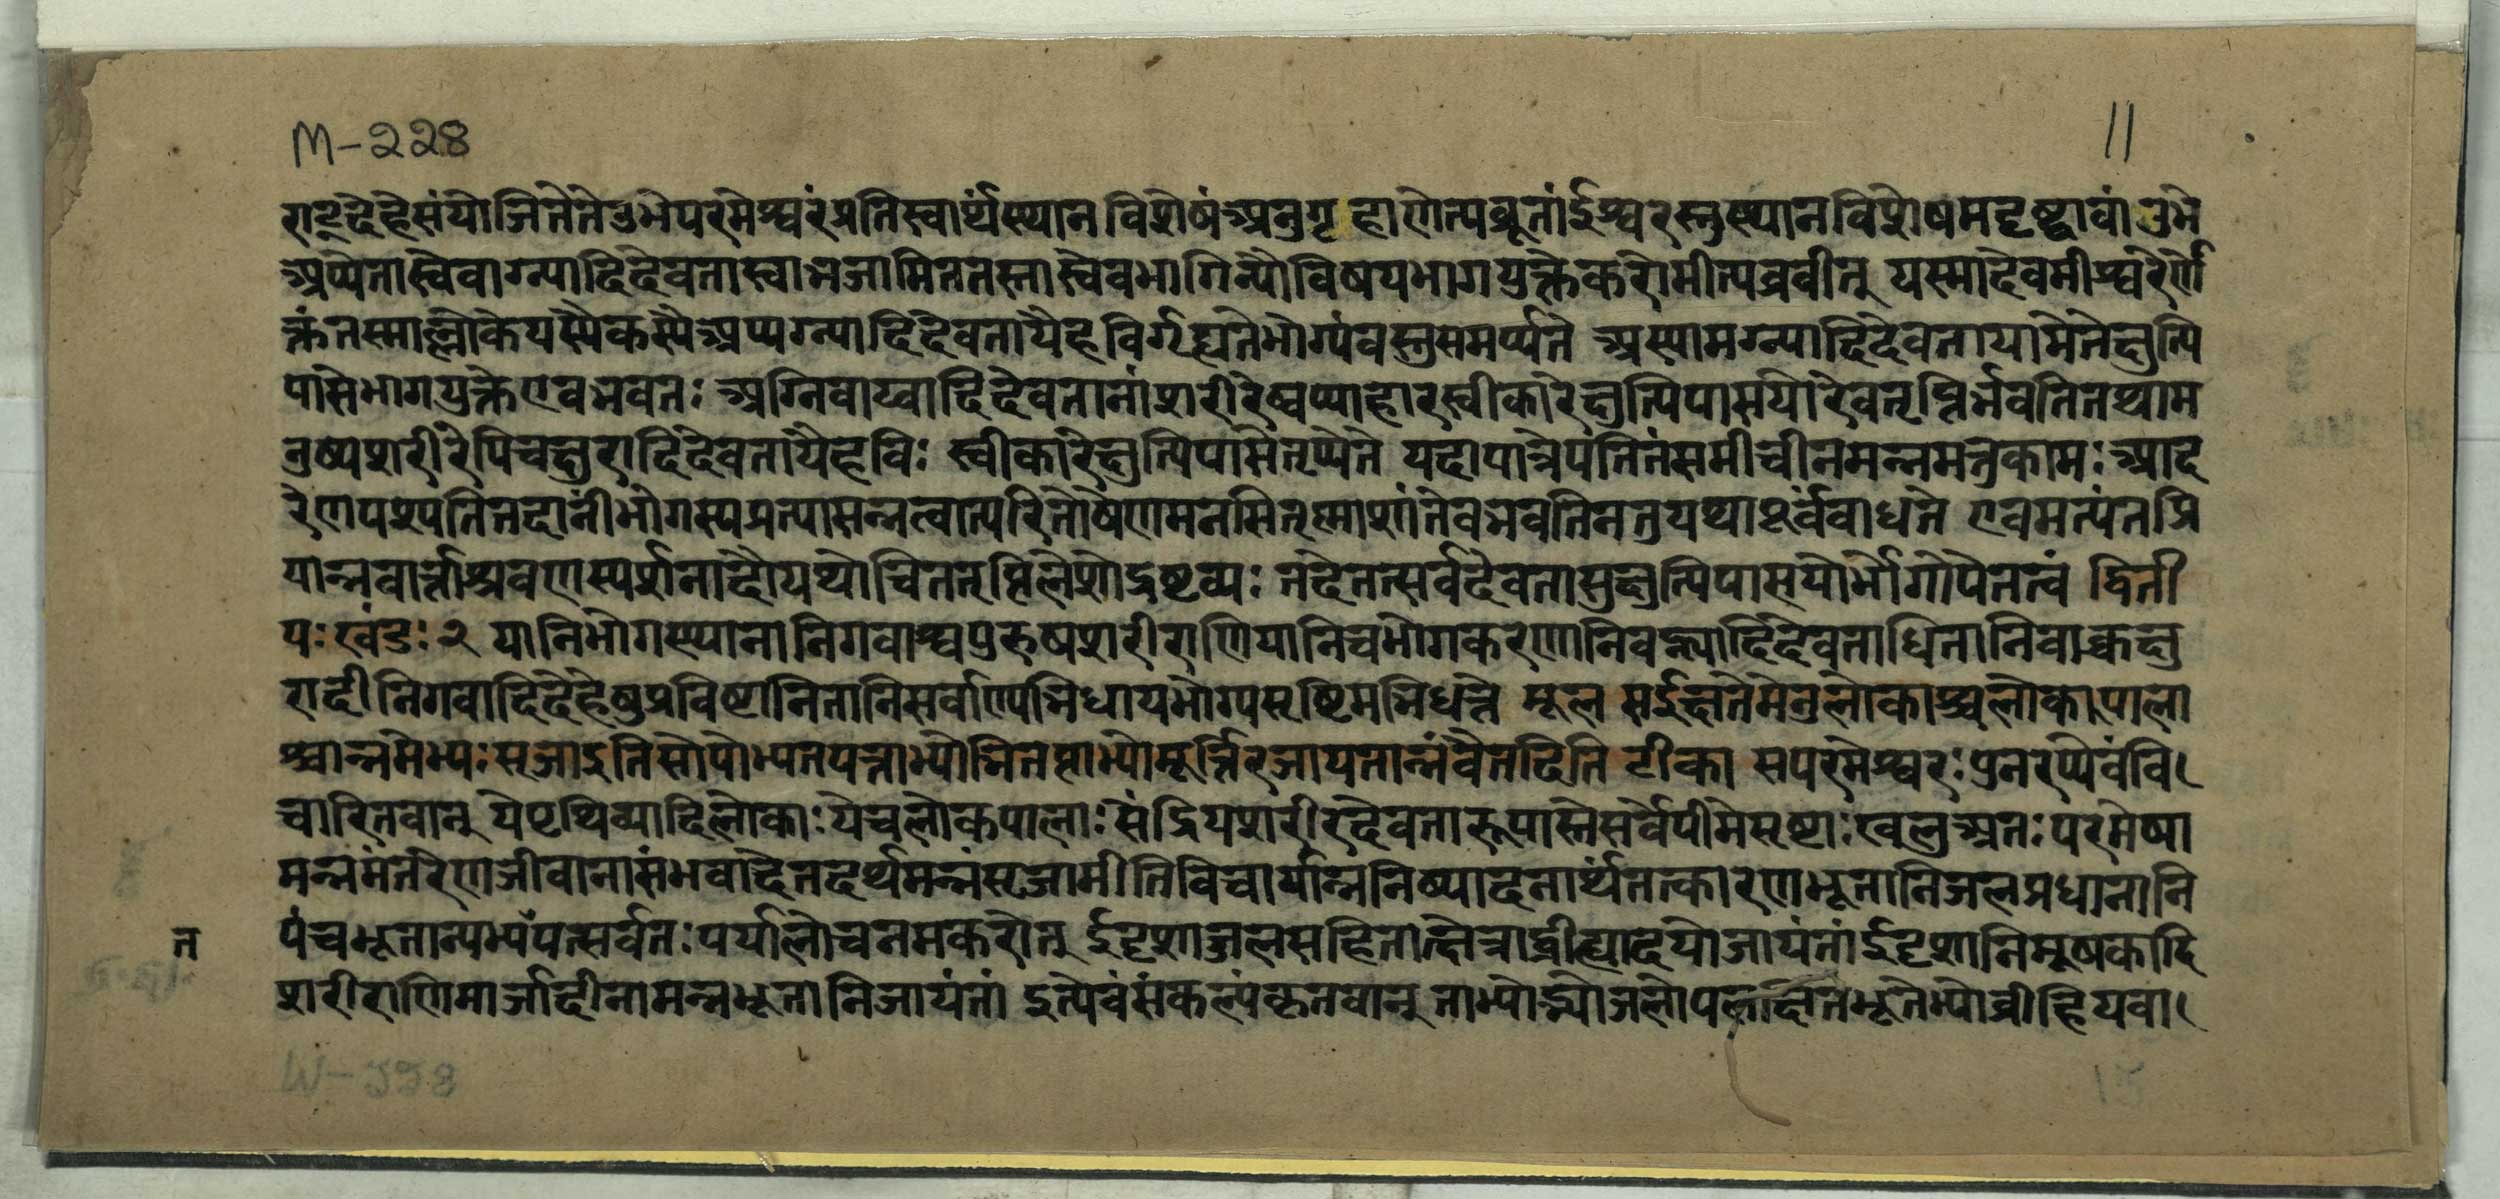 M-२२४
11
राड्देहेसंयोजितेतेउभेपरमेश्वरंप्रतिस्वार्थंस्थानविशेषंअनुगृहाणेत्यब्रूतांईश्वरस्तुस्थानविशेषमदृष्ट्वावांउभे
अप्येतास्वेवाग्न्यादिदेवतास्वाभजामिततस्तास्वेवभागिन्यौविषयभागयुक्तेकरोमीत्यब्रवीत् यस्मादेवमीश्वरेणो
क्तंतस्माल्लोकेयस्यैकस्यैअप्यग्न्यादिदेवतायैहविर्गृह्यतेभोग्यंवस्तुसमर्प्यते अस्यामग्न्यादिदेवतायामेतेक्षुत्पि
पासेभागयुक्तेएवभवतः अग्निवाय्वादिदेवतानांशरीरेष्वप्याहारस्वीकारेक्षुत्पिपासयोरेवतृप्तिर्भवतितथाम
नुष्यशरीरेपिचक्षुरादिदेवतायैहविः स्वीकारेक्षुत्पिपासेतृप्येते यदापात्रेपतितंसमीचीनमन्नमत्तुकामः आद
रेणपश्यतितदानींभोगस्यप्रत्यासन्नत्वात्परितोषेणमनसितृष्माशांतेवभवतिनतुयथापूर्वंबाधते एवमत्यंतप्रि
यान्नवार्त्ताश्रवणस्पर्शनादौयथोचिततृप्तिलेशोद्रष्टव्यः तदेतत्सर्वदेवतासुक्षुत्पिपासयोर्भागोपेतत्वं द्विती
यःखंडः२ यानिभोगस्थानानिगवाश्वपुरुषशरीराणियानिचभोगकरणानिवह्न्यादिदेवताधितानिवाक्चक्षु
रादीनिगवादिदेहेषुप्रविष्टानितानिसर्वाण्यभिधायभोग्यसृष्टिमभिधत्ते मूल सईक्षतेमेनुलोकाश्चलोकापाला
श्चान्नमेभ्यःसृजाइतिसोपोभ्यतपत्ताभ्योभितप्ताभ्योमूर्त्तिरजायतान्नंवैतदिति टीका सपरमेश्वरःपुनरप्येवंवि
चारितवान् येपृथिव्यादिलोकाःयेचलोकपालाःसंद्रियशरीरदेवतारूपास्तेसर्वेपीमेसृष्टाःखलुअतःपरमेषा
मन्नमंतरेणजीवानासंभवादेतदर्थमन्नंसृजामीतिविचार्यान्ननिष्पादनार्थंतत्कारणभूतानिजलप्रधानानि
पंचभूतान्यभ्यंपत्सर्वतःपर्यालोचनमकरोत् ईदृशाज्जलसहितात्क्षेत्राद्व्रीह्यादयोजायंतांईदृशानिमूषकादि
त
शरीराणिमार्जादीनामन्नभूतानिजायंतां इत्येवंसंकल्पंकृतवान् ताभ्योद्भ्योजलोपलक्षितभूतेभ्योव्रीहियवा